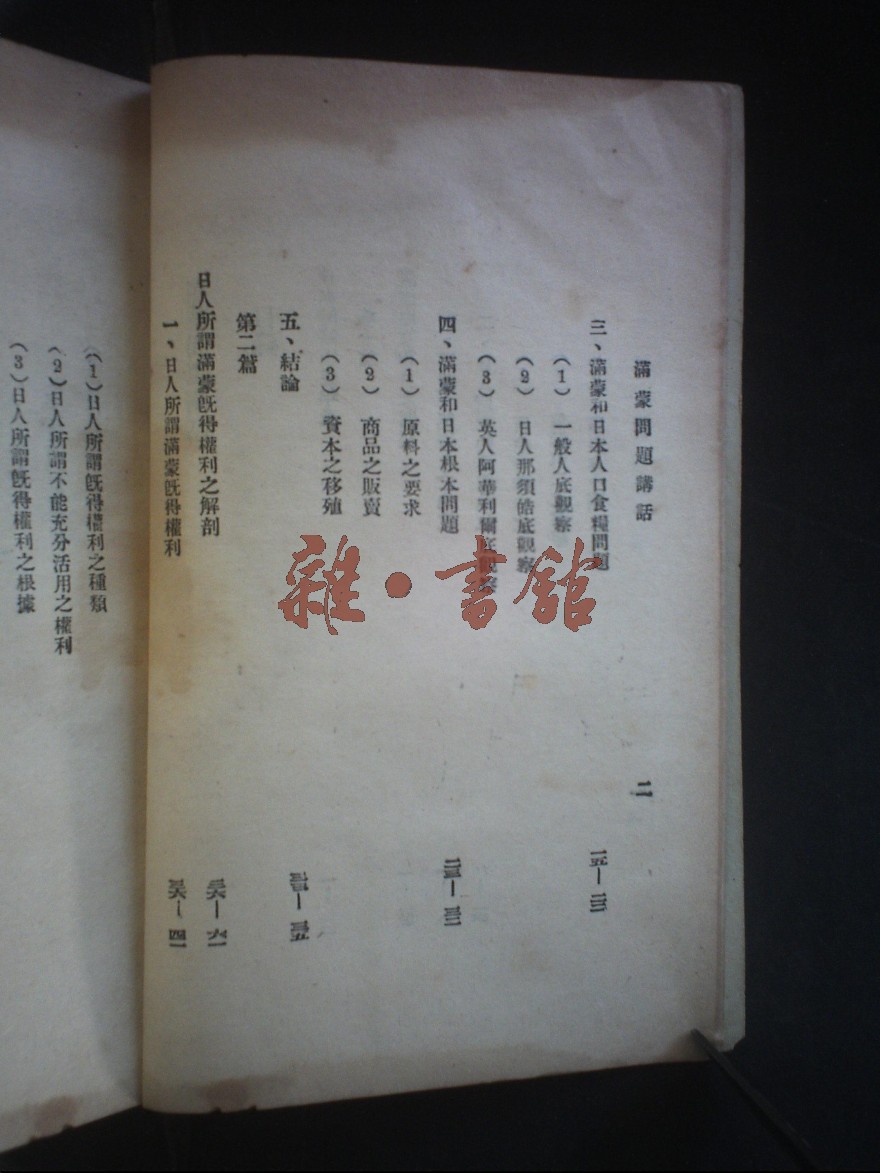 滿蒙問題講話
二
三、滿蒙和日本人口食糧問題 一五—二二
(1) 一般人底觀察
(2) 日人那須皓底觀察
(3) 英人阿華利爾底觀察
四、滿蒙和日本根本問題 二三—三三
(1) 原料之要求
(2) 商品之販賣
(3) 資本之移殖
五、結論 三四—三五
第二篇
日人所謂滿蒙旣得權利之解剖 三六—六一
一、日人所謂滿蒙旣得權利 三六—四一
(1)日人所謂旣得權利之種類
(2)日人所謂不能充分活用之權利
(3)日人所謂旣得權利之根據
雜·書館